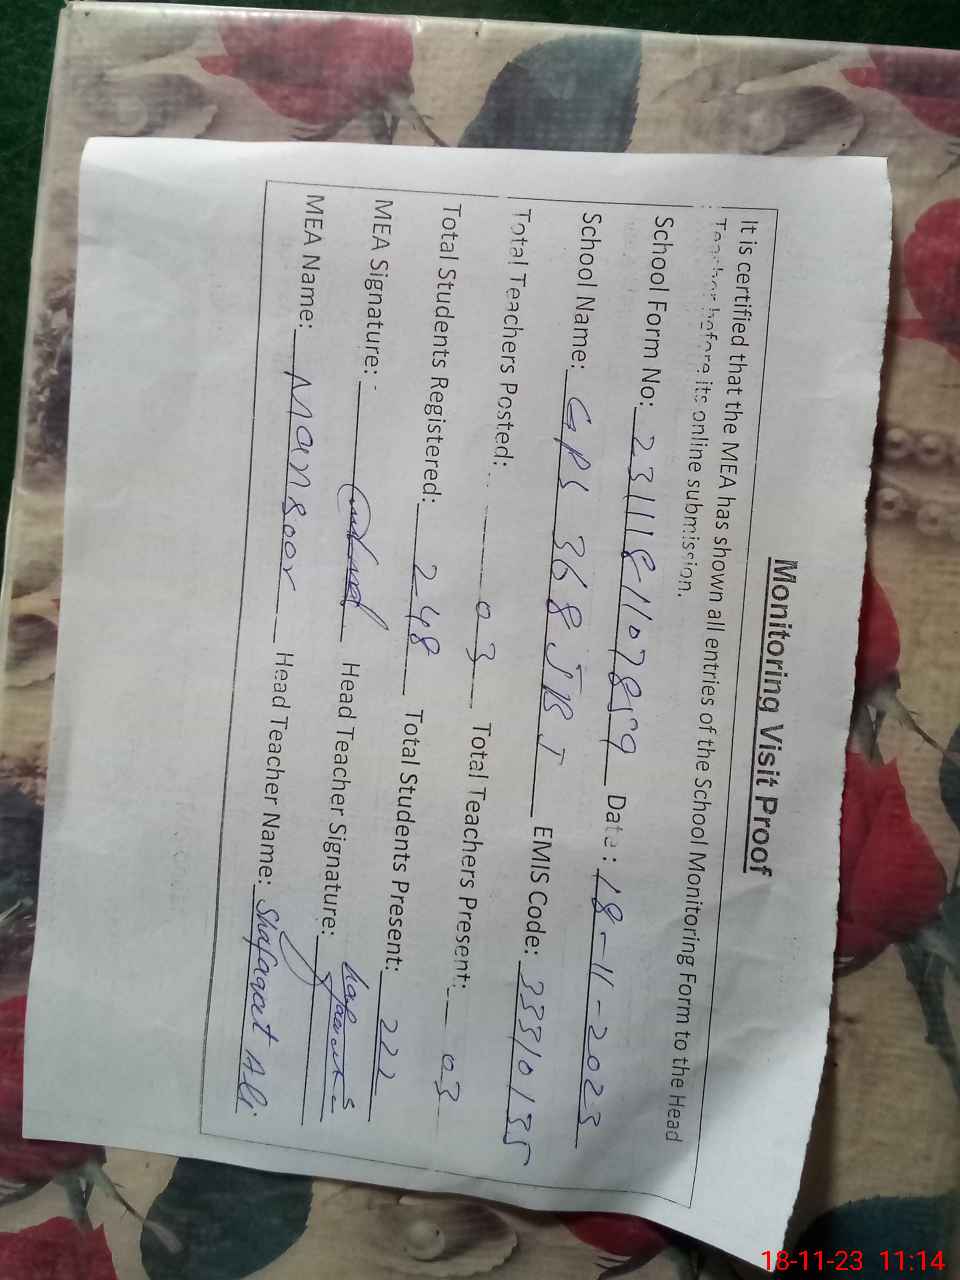 Monitoring Visit Proof
It is certified that the MEA has shown all entries of the School Monitoring Form to the Head
Teacher before its online submission.
School Form No: 231118-1107859 Date: 18-11-2023
School Name: GPS 368 JB I EMIS Code: 33310135
Total Teachers Posted: 03 Total Teachers Present: 03
Total Students Registered: 248 Total Students Present: 222
MEA Signature: Head Teacher Signature:
MEA Name: Mansoor Head Teacher Name: Shafaqat Ali
18-11-23 11:14